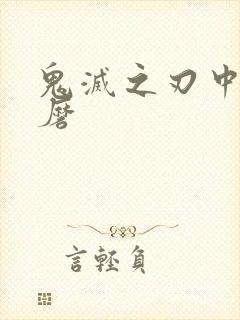 鬼滅之刃中
磨
言輕負